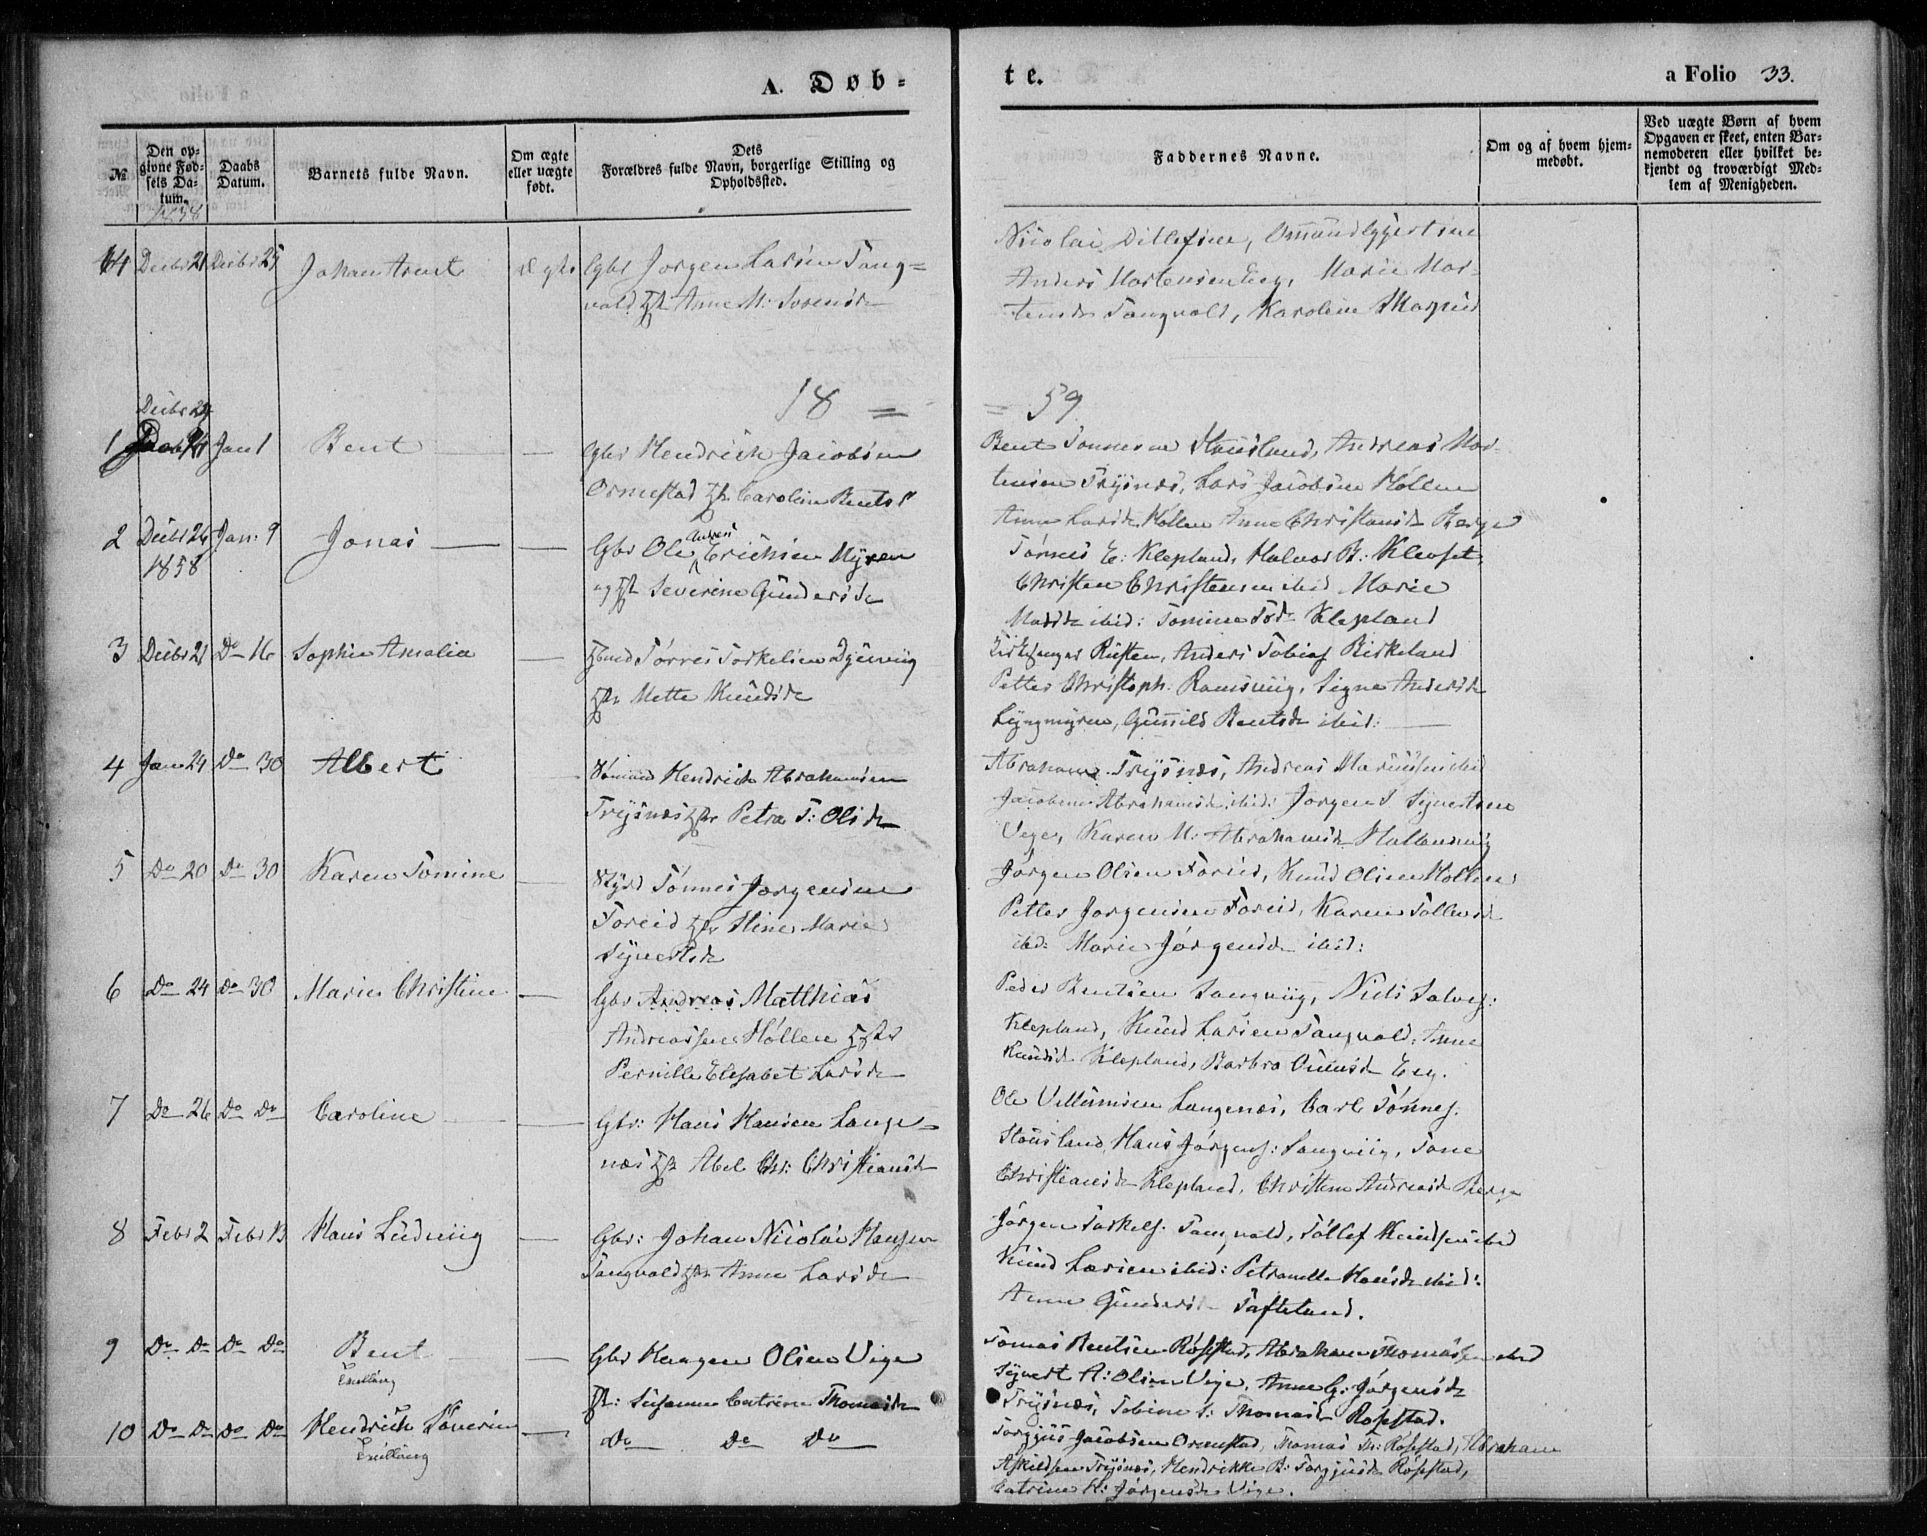 A. Døb-
te.
a Folio 33.
№
Den op-
givne Fød-
sels Da-
tum.
Daabs
Datum.
Barnets fulde Navn.
Om ægte
eller uægte
født.
Dets
Forældres fulde Navn, borgerlige Stilling og
Opholdssted.
Faddernes Navne.
Om og af hvem hjem-
medøbt.
Ved uægte Børn af hvem
Opgaven er skeet, enten Bar-
nemoderen eller hvilket be-
kjendt og troværdigt Med-
lem af Menigheden.
1858
Decbr 21 Decbr 25 Johan Arent Gbr Jørgen Larsen Tang-
vald Anne M: Sørensd
Nicolai Ditlefsen,
Anders Mortensen Eeg, Marie Mor-
tensd Tangvald, Karoline
18 = = 59
Decbr 29
1 Jan 1 Bent Gbr Hendrich Jacobsen
Ormestad Caroline Bentsd
Bent Tønnesen Stausland, Andreas Mor-
tensen Trysnæs, Lars Jacobsen Høllen
Anne Larsd Høllen Anne Christensd Berge
2 Decbr 26 Jan: 9 Jonas Gbr Ole Erichsen Myren
1858
og Severine Gundersd
Tønnes E: Klepland, Halvor B: Klevset
Christen Christensen ibid Marie
ibid: Tomine Klepland
3 Decbr 21 Do 16 Sophie Amalia Tørres Torkelsen
Mette Knudsd
Rusten, Anders Tobias Birkeland
Petter Christoph: Ramsviig, Signe Andersd
Lyngmyren, Gunnild Bentsd ibid:
4 Jan 24 Do 30 Albert Hendrich Abrahamsen
Trysnæs Petra T: Olsd
Abraham Trysnæs, Andreas ibid
Jacobine Abrahamsd ibid: Jørgen S Syvertsen
Vege, Karen M: Abrahamsd
5 Do 20 Do 30 Karen Tomine Tønnes Jørgensen
Toreid Stine Marie
Syvertsd
Jørgen Olsen Toreid, Knud Olsen Holten
Petter Jørgensen Toreid, Karen Tollefsd
ibd: Marie Jørgensd ibid:
6 Do 24 Do 30 Marie Christine Gbr Andreas Matthias
Andreassen Høllen
Pernille Elesabet Larsd
Peder Bentsen Langviig, Niels Salves:
Klepland, Knud Larsen Tangvald, Anne
Knudsd Klepland, Barbra Eeg.
7 Do 26 Do Do Caroline Gbr: Hans Hansen Lange-
næs Abel Chr: Christiansd
Ole Villumsen Langenæs, Carl Tønnes:
Stausland, Hans Jørgens: Langviig, Tone
Christiansd Klepland, Christine Andreasd Berge
8 Febr 2 Febr 13 Hans Ludviig Gbr: Johan Nicolai Hansen
Tangvald Anne Larsd
Jørgen Torkels: Tangvald, Tollef Knudsen ibid
Knud Larsen ibid: Petronelle Hansd ibid:
Anne Gundersd Tofteland.
9 Do Do Do Do Bent Gbr Haagen Olsen Vige
Tvilling
Susanne Catrine Thomasd
Tomas Bentsen Røsstad, Abraham Thomassen ibid
Syvert A: Olsen Vige, Anne G: Jørgensd
Trysnæs, Tobine S: Thomasd Røsstad.
10 Do Do Do Do Hendrich Severin Do Do Do
Tvilling
Torgjus Jacobsen Ormestad, Thomas Th: Røsstad, Abraham
Askildsen Trysnæs, Hendrikke B: Torgjusd Røsstad,
Catrine H: Jørgensd Vige.